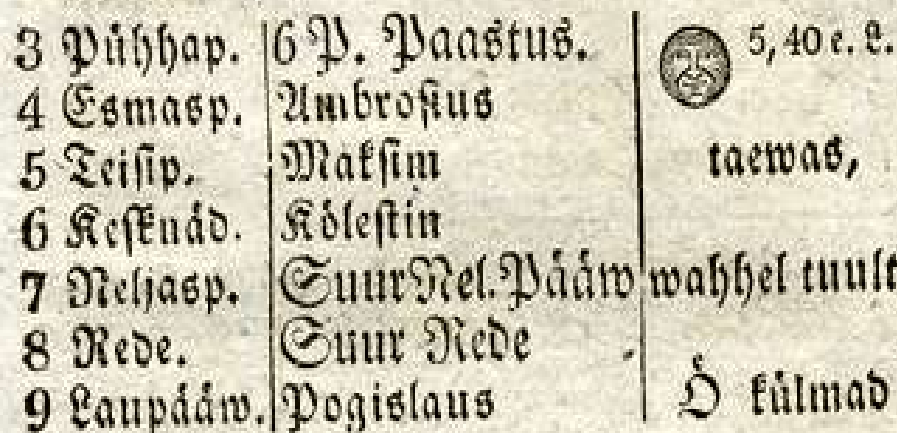 3 Pühhap. 6 P. Paastus. 5, 40 e. L.
4 Esmasp. Ambrosius
5 Teisip. Maksim taewas,
6 Kesknäd. Kölestin
7 Neljasp. Suur Nel. Pääw wahhel tuult
8 Rede. Suur Rede
9 Laupääw. Pogislaus Ö külmad